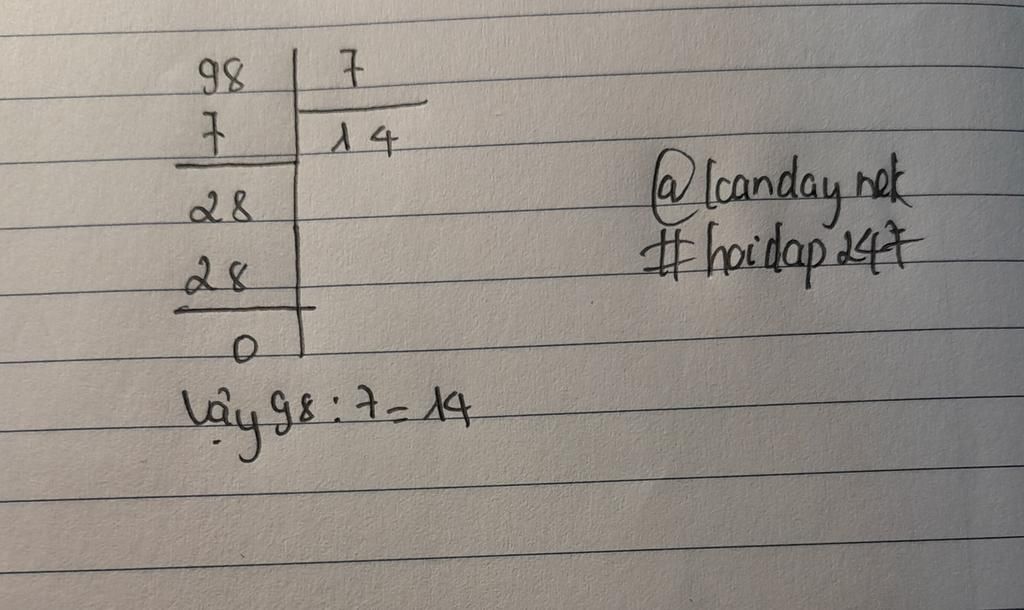 98 7
7 14
28
28
0
Vậy 98 : 7 = 14
@lcanday nek
#hoidap247